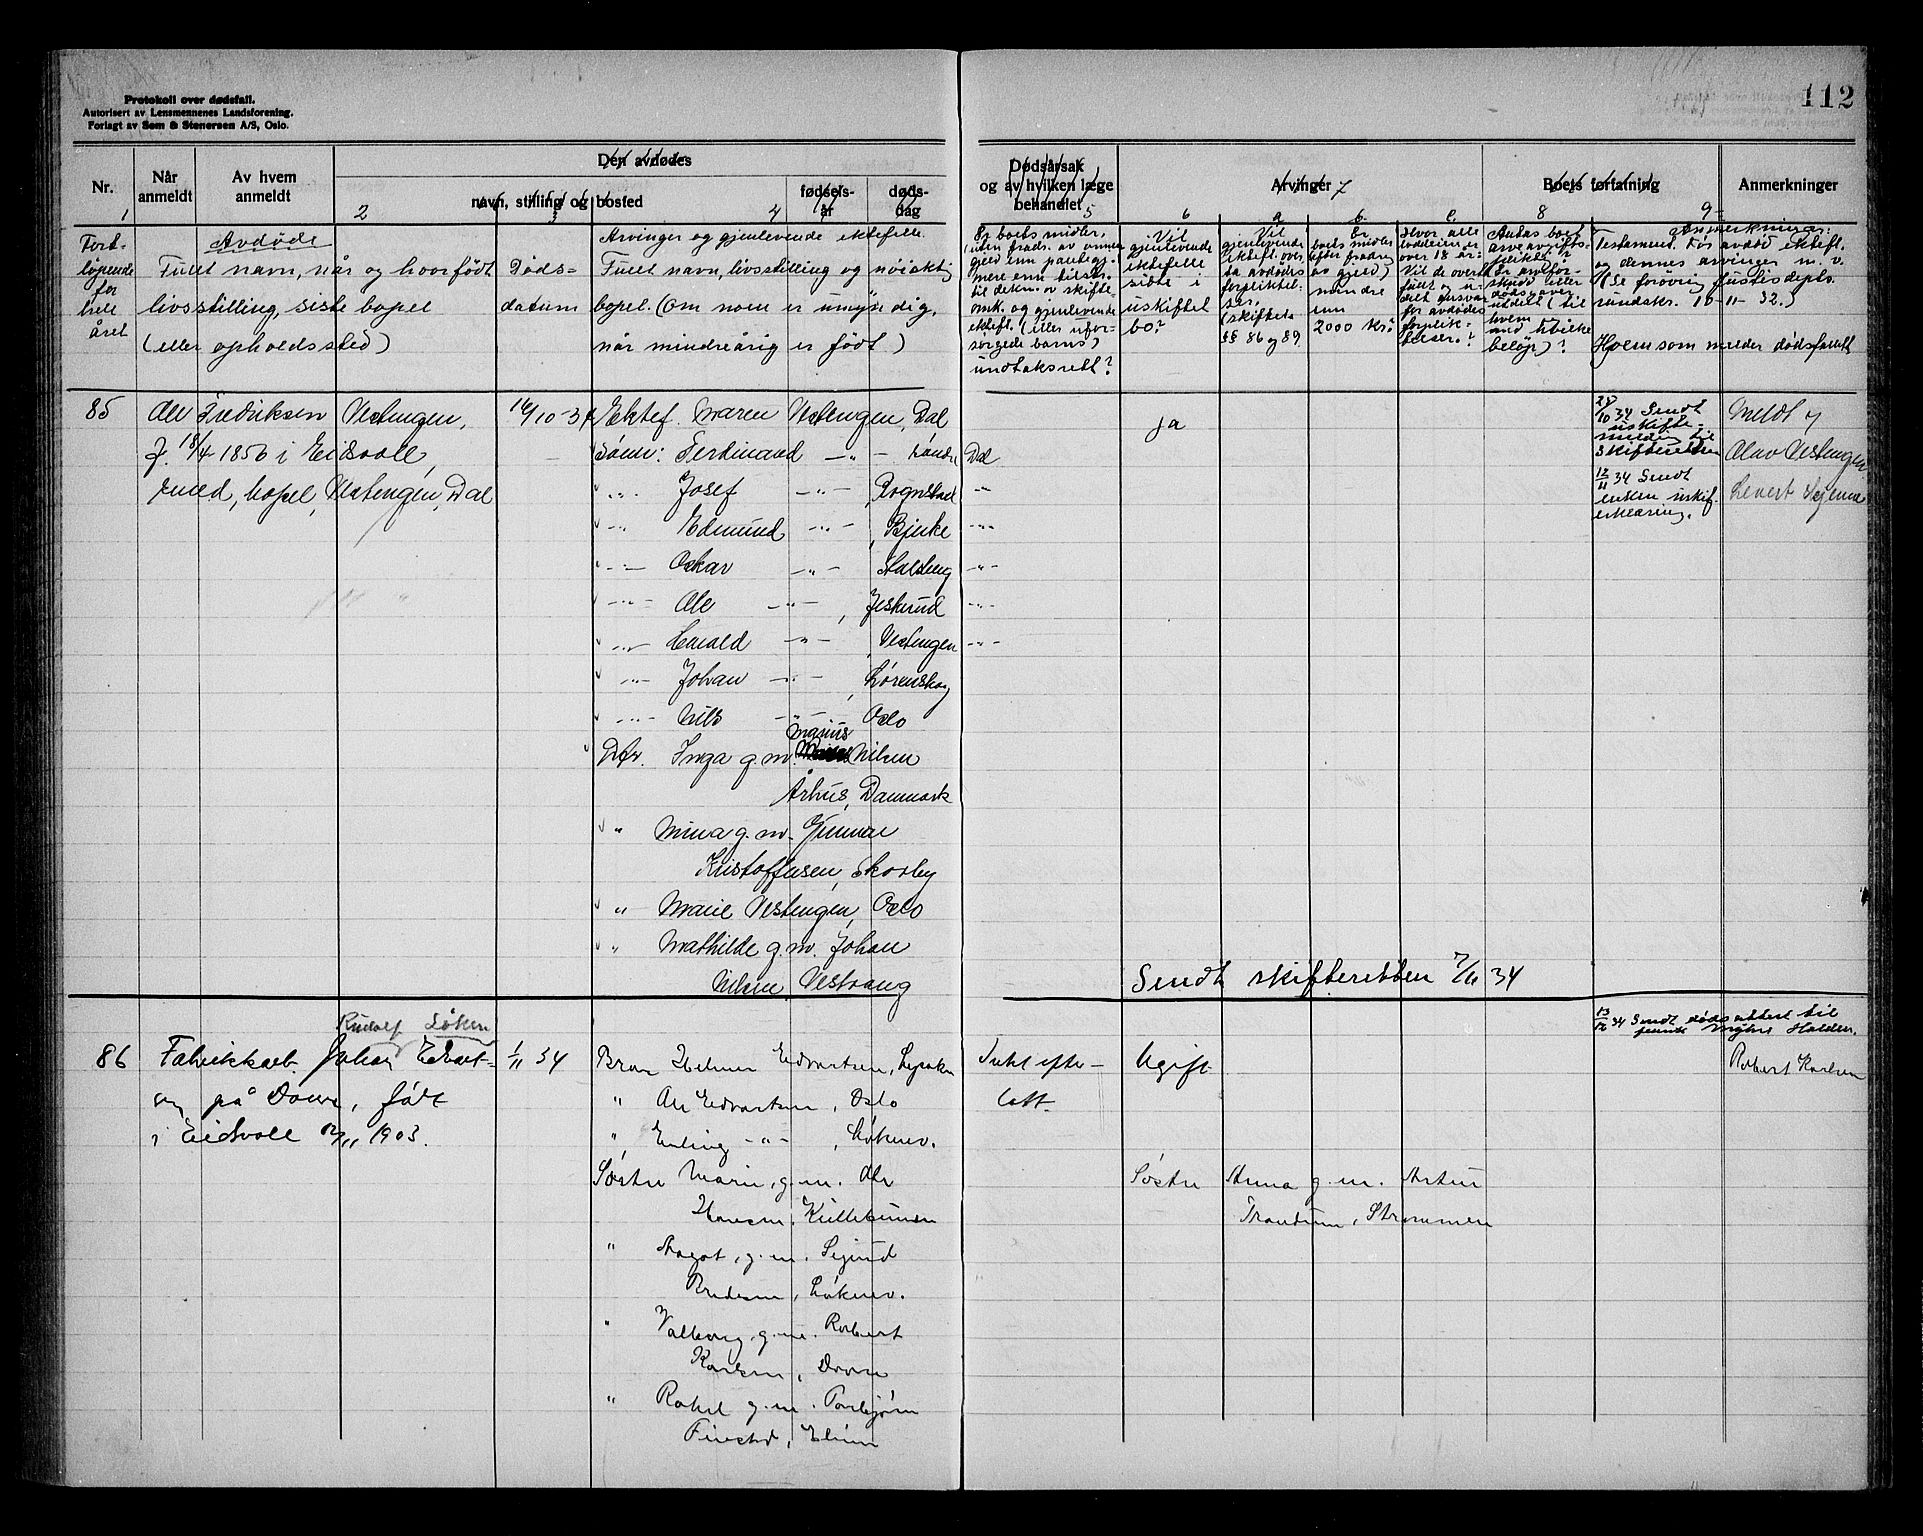 Protokoll over dødsfall.
Autorisert av Lensmennenes Landsforening.
Forlagt av Sem & Stenersen A/S, Oslo.
112
Nr.
Når anmeldt
Av hvem anmeldt
Den avdødes
navn, stilling og bosted
fødsels-år
døds-dag
Dødsårsak
og av hvilken læge
behandlet
Arvinger
Boets forfatning
Anmerkninger
1 2 3 4 5 6 7 a b. c. 8 9
Fort-
løpende
for
hele
året
Avdøde
Fullt navn, når og hvor født
livsstilling, siste bopel
(eller opholdssted)
Døds-
datum
Arvinger og gjenlevende ektefelle.
Fullt navn, livsstilling og nøiaktig
bopel. (Om noen er umyndig,
når mindreårig er født)
Er boets midler,
(uten fradr. av annen
gjeld enn panteg.
mere enn tilstr.
til dekn. av skifte-
omk. og gjenlevende
ektef. (eller ufor-
sørgede barns)
undtaksrett?
Vil
gjenlevende
ektefelle
sitte i
uskiftet
bo?
Vil
gjenlevende
ektef. over-
ta avdødes
forpliktel-
ser.
(skiftel.
§§ 86 og 89
Er
boets midler
efter fradrag
av gjeld)
mindre
enn
2000 kr.?
Hvor alle
loddeiere er
over 18 år
Vil de overta
fullt og u-
delt ansvar
for avdødes
forplik-
telser.?
Antas boet
arveavgifts-
pliktig?
Er arvefor-
skudd eller
dødsgaver
utdelt (til
hvem
and hvilke
beløp)?
Anmerkninger:
Testament. Før avdød ektef.
og dennes arvinger m. v.
(Se forøvrig Justisdepts.
rundskr. 10-11-32.)
Hvem som melder dødsfallet
85
Ole Fredriksen Vestengen,
f. 18/4 1856 i Eidsvoll,
bopel, Vestengen, Dal
16/10-34
Ektef. Maren Vestengen, Dal
Sønn: Ferdinand —"— Dal
" Josef —"— Rognstad —"—
—"— Edmund —"—, Bjerke —"—
—"— Oskar —"— —"—
—"— Ole —"—, Jeskerud —"—
—"— Harald —"— Vestengen —"—
—"— Johan —"—, Lørenskog
—"— Nils —"— Oslo
Dtr. Inga g.m. Magnus Nilsen
Århus, Danmark
" Mina g.m. Gunnar
Kristoffersen, Skorby
" Marie Vestengen, Oslo
" Mathilde g.m. Johan
Nilsen Vestvang
ja
27/10 34 Sendt
uskifte-
melding til
skifteretten
12/11 34 Sendt
enken uskif.
erklæring.
Meldt
Olav Vestengen
Sendt skifteretten 7/11 34
86
Rudolf Løken
Fabrikkarb. Johan Edvart-
sen på Dovre, født
i Eidsvoll 12/11 1903.
1/11 34
Bror Helmer Edvartsen, Lysaker
" Ole Edvartsen, Oslo
" Erling —"—, Løkenv.
Søster Marie, g.m. Ole
Hansen, Kullebunden
" Aagot, g.m. Sigurd
Bredesen, Løkenv.
" Valborg, g.m. Robert
Karlsen, Dovre
" Rakel g.m. Torbjørn
Finstad,
Intet efter-
latt.
Ugift
Søster Anna g.m. Artur
Trandum, Strømmen
13/12 34 Sendt dødsattest til
Halden.
Robert Karlsen